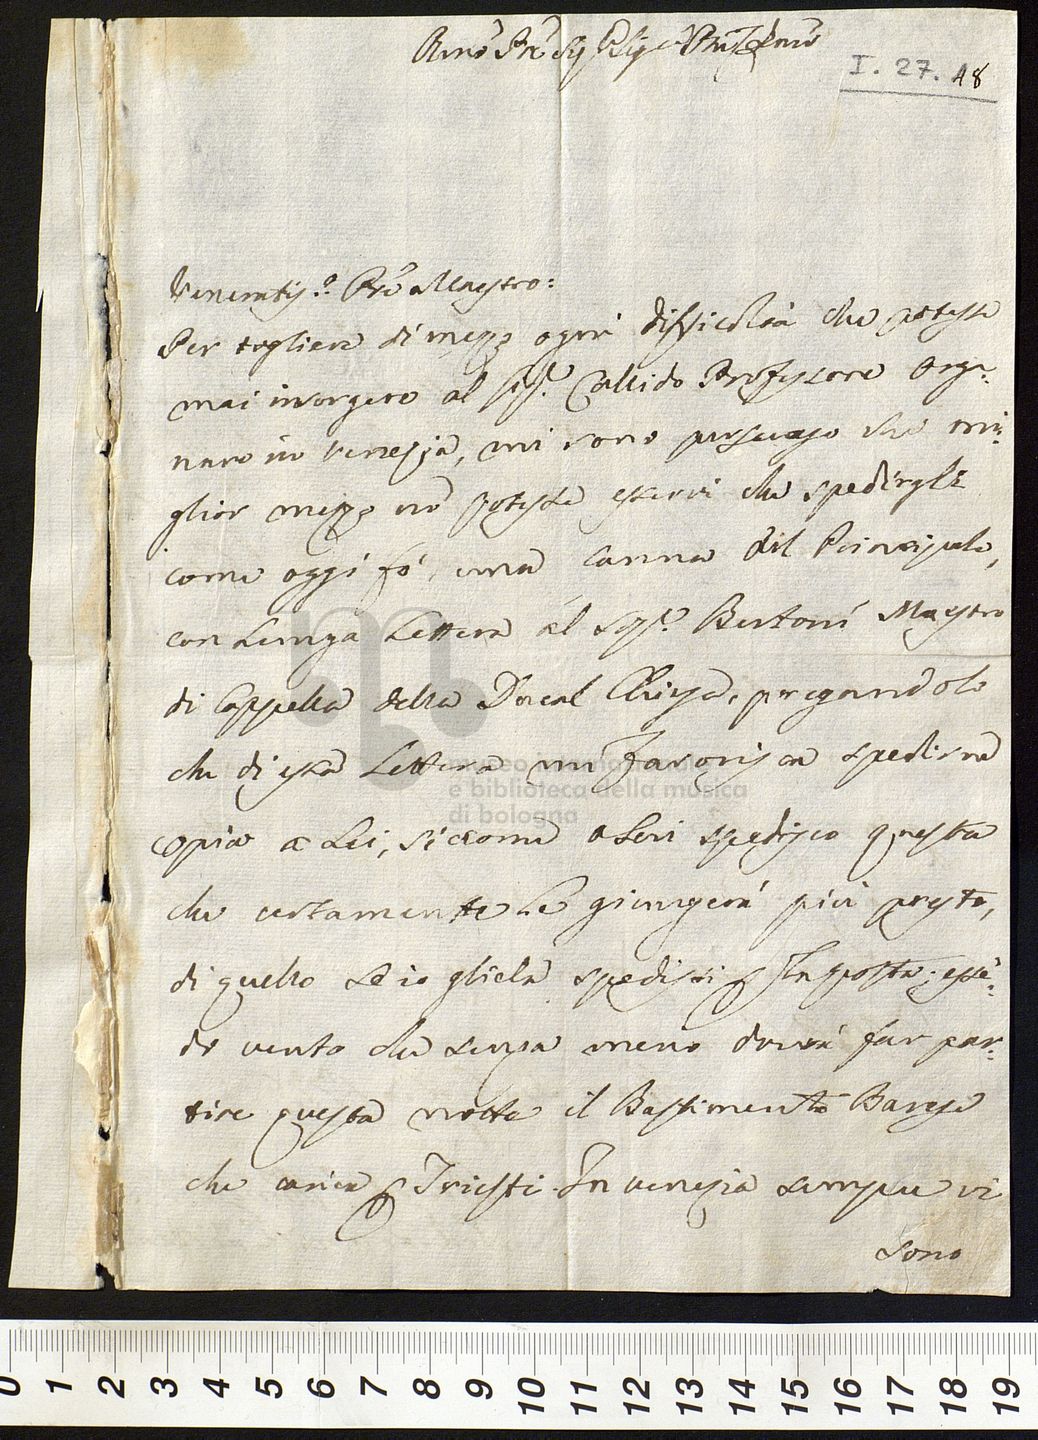 I. 27. 48
Veneratis.º P.re Maestro:
Per togliere di mezzo ogni difficoltà che potesse
mai insorgere al Sig.r Callido Professore Orga-
naro in Venezia, mi sono persuaso che mi-
glior mezzo nõ potesse esservi che spedirgli
come oggi fo, una Canna del Principale,
con lunga Lettera al Sig.r Bertoni Maestro
di Cappella della Ducal Chiesa, pregandolo
che di essa Lettera mi favorisca spedirne
copia a Lei, siccome a Lei spedisco questa
che certamente Le giungerà più presto,
di quello se io gliela spedissi Inposta: essẽ-
do vento che senza meno dovrà far par-
tire questa notte il Bastimento Barese
che carica Triesti. In Venezia sempre vi
sono
museo internazionale
e biblioteca della musica
di bologna
0 1 2 3 4 5 6 7 8 9 10 11 12 13 14 15 16 17 18 19